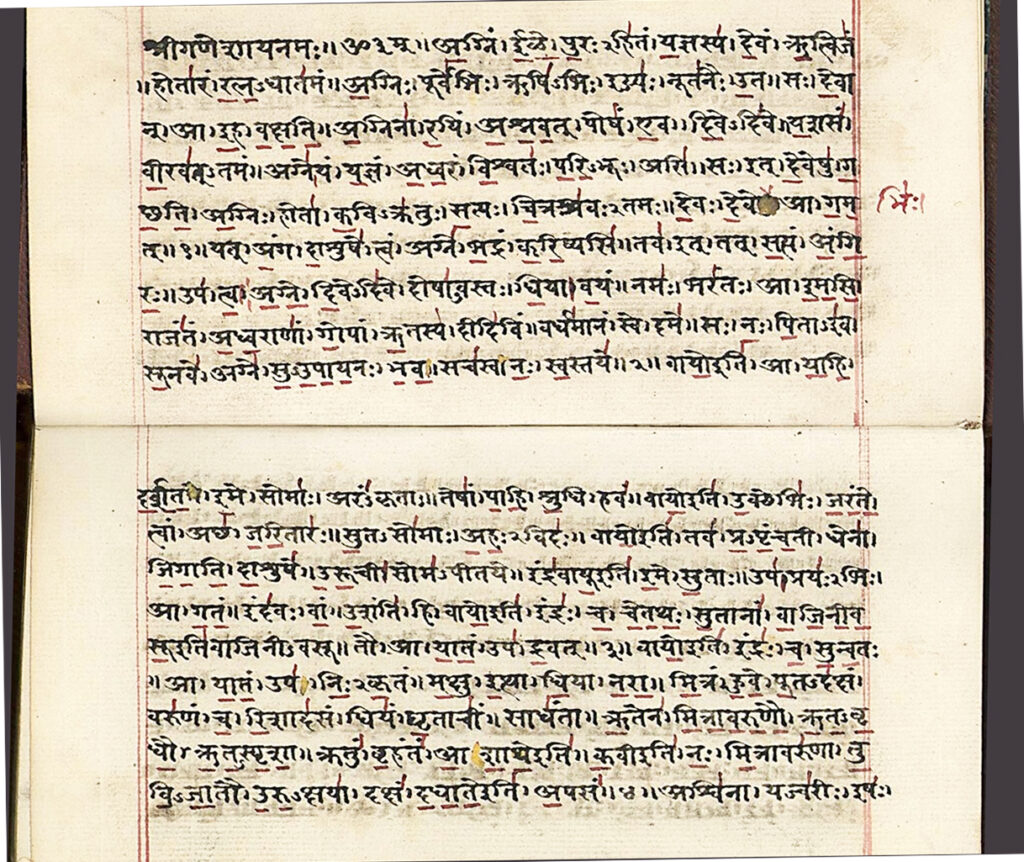 श्रीगणेशायनमः॥ॐ३म्॥अग्निं।ईळे।पुरःऽहितं।यज्ञस्य।देवं।ऋत्विजं
॥होतारं।रत्नऽधातमं॥अग्निः।पूर्वेभिः।ऋषिऽभिः।ईड्यः।नूतनैः।उत॥सः।देवा
न्।आ।इह।वक्षति॥अग्निना।रयिं।अश्नवत्।पोषं।एव।दिवेऽदिवे॥यशसं
वीरवत्ऽतमं॥अग्ने।यं।यज्ञं।अध्वरं।विश्वतः।परिऽभूः।असि॥सः।इत्।देवेषु।ग
च्छति।अग्निः।होता।कविऽक्रतुः।सत्यः।चित्रश्रवःऽतमः॥देवः।देवे आ।गम
भिः।
त्॥१॥यत्।अंग।दाशुषे।त्वं।अग्ने।भद्रं।करिष्यसि॥तव।इत्।तत्।सत्यं।अंगि
रः॥उप।त्वा।अग्ने।दिवेऽदिवे।दोषाऽवस्तः।धिया।वयं॥नमः।भरंतः।आ।इमसि॥
राजंतं।अध्वराणां।गोपां।ऋतस्य।दीदिविं॥वर्धमानं।स्वे।दमे॥सः।नः।पिताऽइव
सूनवे।अग्ने।सुऽउपायनः।भव॥सचस्व।नः।स्वस्तये॥२॥वायोइति।आ।याहि।
दर्शत।इमे।सोमाः।अरंऽकृताः॥तेषां।पाहि।श्रुधि।हवं॥वायोइति।उक्थेभिः।जरंते।
त्वां।अच्छ।जरितारः॥सुतऽसोमाः।अहःऽविदः॥वायोइति।तव।प्रऽपृंचती।धेना।
जिगाति।दाशुषे॥उरूची।सोमऽपीतये॥इंद्रवायूइति।इमे।सुताः॥उप।प्रयःऽभिः।
आ।गतं॥इंदवः।वां।उशंति।हि॥वायोइति।इंद्रः।च।चेतथः।सुतानां।वाजिनीव
सूइतिवाजिनीऽवसू॥तौ।आ।यातं।उप।द्रवत्॥३॥वायोइति।इंद्रः।च।सुन्वतः
॥आ।यातं।उप।निःऽकृतं॥मक्षु।इत्था।धिया।नरा॥मित्रं।हुवे।पूतऽदक्षं।
वरुणं।च।रिशादसं॥धियं।घृताचीं।साधंता॥ऋतेन।मित्रावरुणौ।ऋतऽवृ
धौ।ऋतऽस्पृशा॥क्रतुं।बृहंतं।आशाथेइति॥कवीइति।नः।मित्रावरुणा।तु
विऽजातौ।उरुऽक्षया॥दक्षं।दधातेइति।अपसं॥४॥अश्विना।यज्वरीः।इषः।